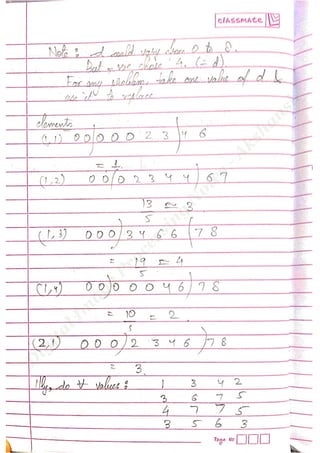 classmate
Note : d could vary from 0 to 8.
But we chose 4, (= d).
For any problem, take one value of d &
use it to replace
elements
(1,1) 0 0 ) 0 0 0 2 3 ) 4 6
= 1
(1,2) 0 0 ( 0 2 3 4 4 ) 6 7
13/5 ≈ 3
(1,3) 0 0 0 ) 3 4 6 6 ( 7 8
= 19/5 = 4
(1,4) 0 0 ) 0 0 0 4 6 ) 7 8
= 10/5 = 2
(2,1) 0 0 0 ) 2 3 4 6 ) 7 8
= 3
Illy, do ∀ values : 1 3 4 2
3 6 7 5
4 7 7 5
3 5 6 3
Page No